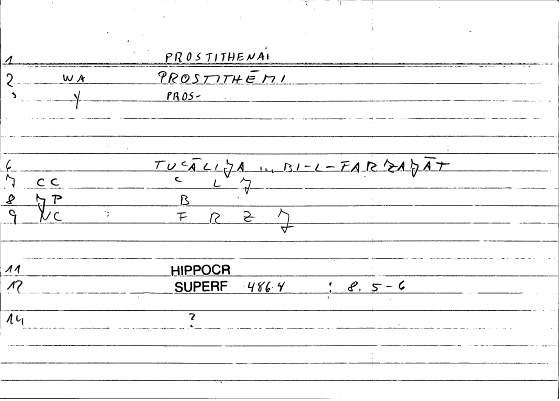 1 PROSTITHENAI
2 WA PROSTITHĒMI
3 Y PROS-
6 TUʿĀLIJA ... BI-L-FARZAJĀT
7 CC ʿ L J
8 JP B
9 NC F R Z J
11 HIPPOCR
12 SUPERF 486.4 : 8.5-6
14 ?